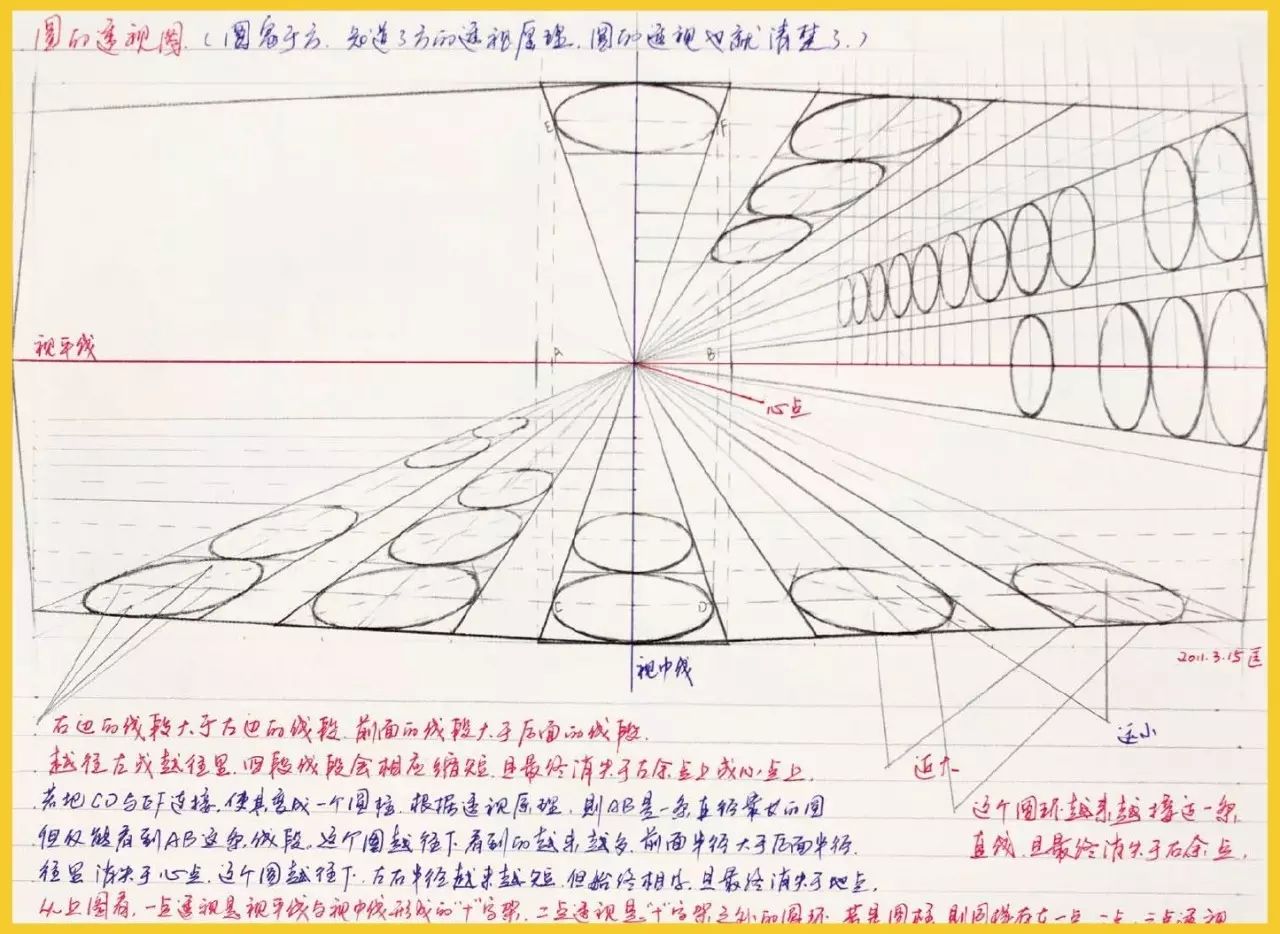 圆的透视图.（圆寓于方.知道了方的透视原理.圆的透视也就清楚了.）
E
F
视平线
A
B
心点
C
D
视中线
2011.3.15 匡
右边的线段大于左边的线段.前面的线段大于后面的线段.
远小
越往左或越往里.四段线段会相应缩短.且最终消失于左余点上或心点上.
近大
若把CD与EF连接.使其变成一个圆柱.根据透视原理.则AB是一条直径最大的圆
这个圆环越来越接近一条
但仅能看到AB这条线段.这个圆越往下看到的越来越多.前面半径大于后面半径.
直线.且最终消失于右余点.
往里消失于心点.这个圆越往下.左右半径越来越短.但始终相等.且最终消失于地点.
从上图看.一点透视是视平线与视中线形成的"十"字架.二点透视是"十"字架之外的圆环.若是圆柱.则同样存在一点.二点.三点透视